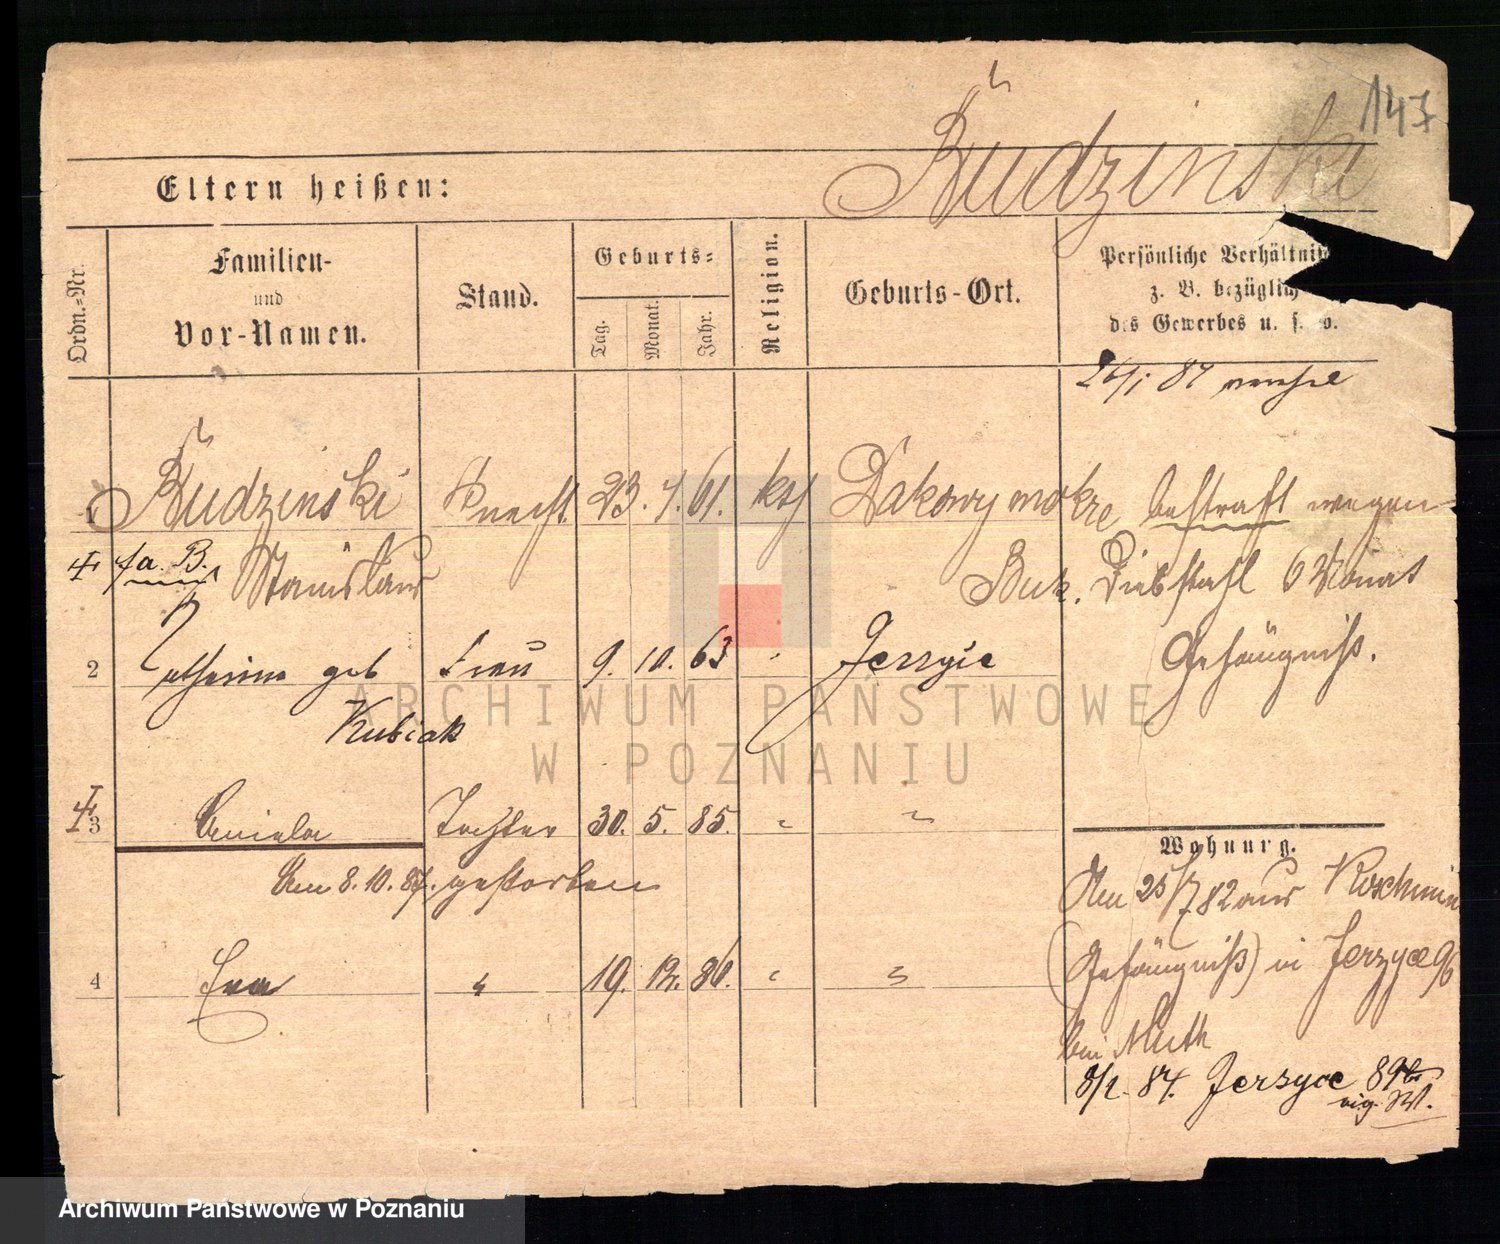 147
Rudzinski
Eltern heißen:
Ordn.-Nr.
Familien-
und
Vor-Namen.
Stand.
Geburts-
Tag.
Monat.
Jahr.
Religion.
Geburts-Ort.
Persönliche Verhältnis
z. B. bezüglich
des Gewerbes u. s. w.
1 Rudzinski Knecht 23. 4. 61. kth Dakowy mokre bestraft wegen
Stanislaus Buk. Diebstahl 6 Monat
2 Catharina geb Frau 9. 10. 63 " Jerzyce Gefängniß.
Kubiak
3 Aniela Tochter 30. 5. 85. " "
Am 8.10.87. gestorben
4 Eva " 19. 12. 86. " "
Wohnung.
Am 25/7 82 aus Koschmin
(Gefängniß) in Jerzyce 96
bei Muth
8/2. 84. Jerzyce 89b
ARCHIWUM PAŃSTWOWE
W POZNANIU
Archiwum Państwowe w Poznaniu